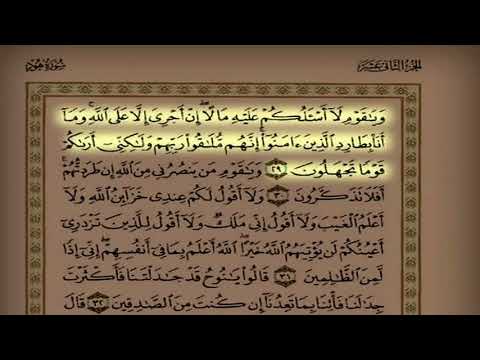 سُورَةُ هُودٍ
الجزء الثاني عشر
وَيَٰقَوْمِ لَآ أَسْـَٔلُكُمْ عَلَيْهِ مَالًا ۖ إِنْ أَجْرِىَ إِلَّا عَلَى ٱللَّهِ ۚ وَمَآ
أَنَا۠ بِطَارِدِ ٱلَّذِينَ ءَامَنُوٓا۟ ۚ إِنَّهُم مُّلَٰقُوا۟ رَبِّهِمْ وَلَٰكِنِّىٓ أَرَىٰكُمْ
قَوْمًا تَجْهَلُونَ ٢٩ وَيَٰقَوْمِ مَن يَنصُرُنِى مِنَ ٱللَّهِ إِن طَرَدتُّهُمْ ۚ
أَفَلَا تَذَكَّرُونَ ٣٠ وَلَآ أَقُولُ لَكُمْ عِندِى خَزَآئِنُ ٱللَّهِ وَلَآ
أَعْلَمُ ٱلْغَيْبَ وَلَآ أَقُولُ إِنِّى مَلَكٌ وَلَآ أَقُولُ لِلَّذِينَ تَزْدَرِىٓ
أَعْيُنُكُمْ لَن يُؤْتِيَهُمُ ٱللَّهُ خَيْرًا ۖ ٱللَّهُ أَعْلَمُ بِمَا فِىٓ أَنفُسِهِمْ ۖ إِنِّىٓ إِذًا
لَّمِنَ ٱلظَّٰلِمِينَ ٣١ قَالُوا۟ يَٰنُوحُ قَدْ جَٰدَلْتَنَا فَأَكْثَرْتَ
جِدَٰلَنَا فَأْتِنَا بِمَا تَعِدُنَآ إِن كُنتَ مِنَ ٱلصَّٰدِقِينَ ٣٢ قَالَ